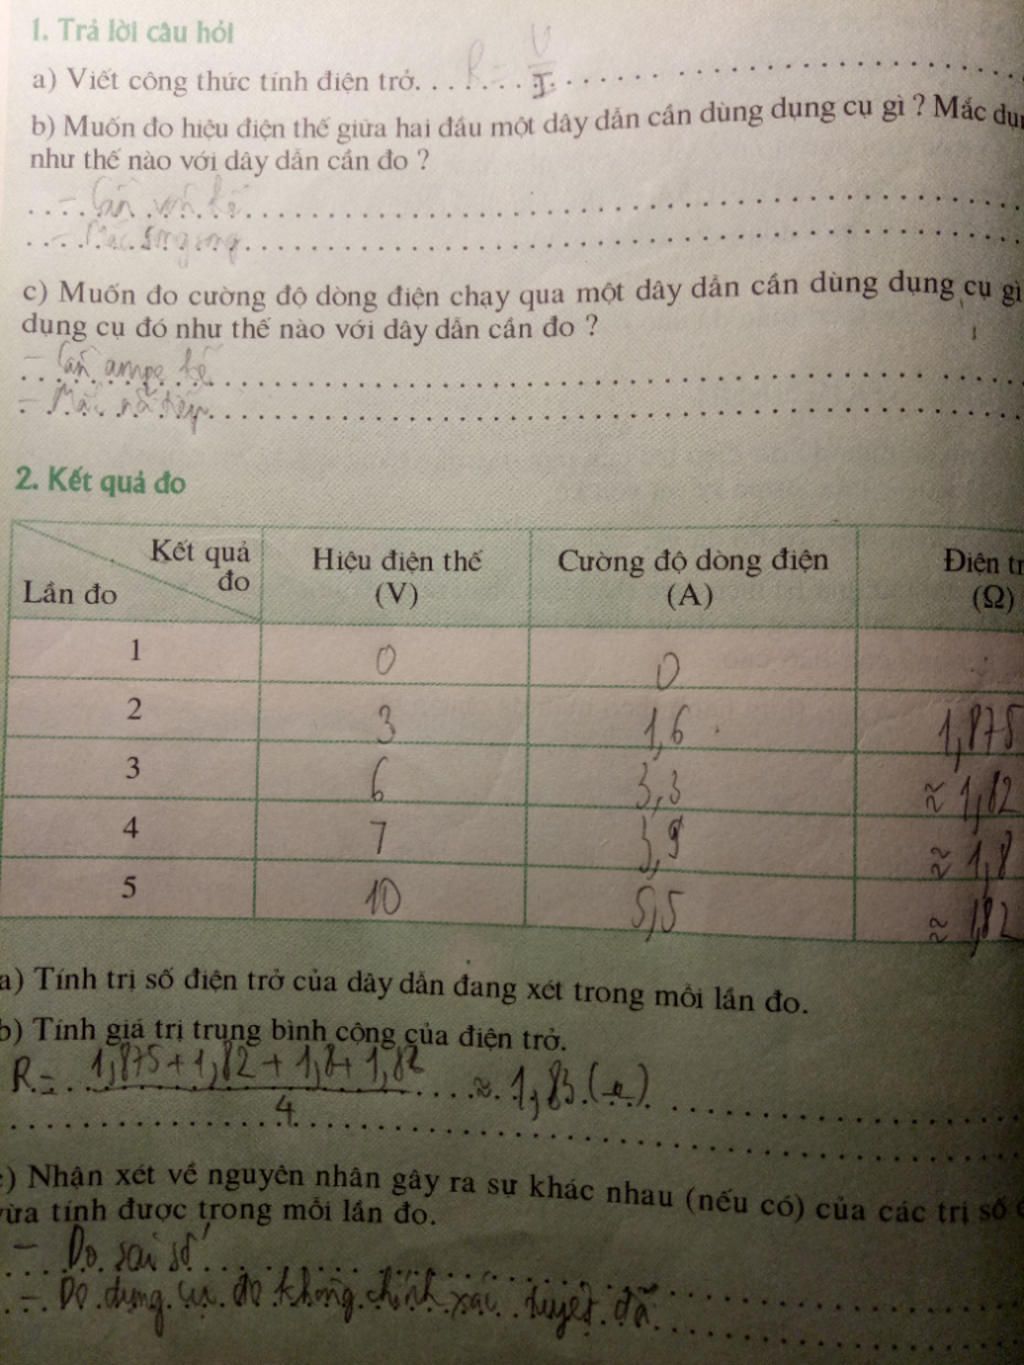 1. Trả lời câu hỏi
a) Viết công thức tính điện trở. R = U/I
b) Muốn đo hiệu điện thế giữa hai đầu một dây dẫn cần dùng dụng cụ gì ? Mắc
như thế nào với dây dẫn cần đo ?
- Cần vôn kế
- Mắc song song
c) Muốn đo cường độ dòng điện chạy qua một dây dẫn cần dùng dụng cụ gì
dụng cụ đó như thế nào với dây dẫn cần đo ?
- Cần ampe kế
- Mắc nối tiếp
2. Kết quả đo
Kết quả đo
Lần đo
Hiệu điện thế (V)
Cường độ dòng điện (A)
Điện (Ω)
1 0 0
2 3 1,6 1,875
3 6 3,3 ≈ 1,82
4 7 3,9 ≈ 1,8
5 10 5,5 ≈ 1,82
a) Tính trị số điện trở của dây dẫn đang xét trong mỗi lần đo.
b) Tính giá trị trung bình cộng của điện trở.
R = 1,875 + 1,82 + 1,8 + 1,82 / 4 ≈ 1,83 (Ω)
) Nhận xét về nguyên nhân gây ra sự khác nhau (nếu có) của các trị số
vừa tính được trong mỗi lần đo.
- Do sai số
- Do dụng cụ đo không chính xác tuyệt đối